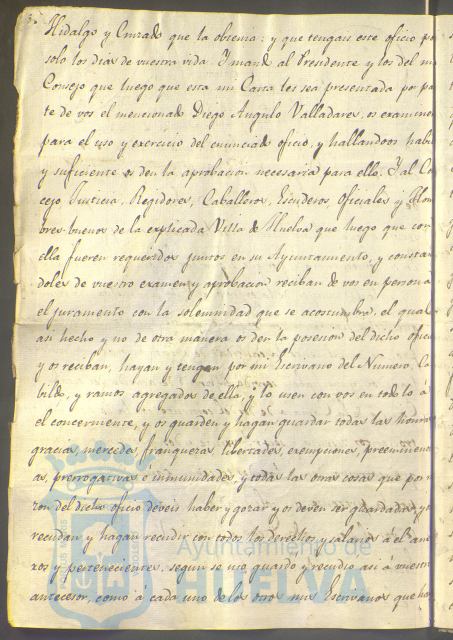 Hidalgo y Honrado que la obtenia: y que tengais este oficio po
solo los dias de vuestra vida. Y mando al Presidente y los del mi
Consejo que luego que esta mi Carta les sea presentada por pa
te de vos el mencionado Diego Angulo Valladares, os examinen
para el uso y exercicio del enunciado oficio, y hallandoos habil
y suficiente os den la aprobacion necesaria para ello. Y al Co
cejo Justicia, Regidores, Caballeros, Escuderos, Oficiales y Hom
bres-buenos de la explicada Villa de Huelva que luego que con
ella fueren requeridos juntos en su Ayuntamiento, y constan
doles de vuestro examen y aprobacion reciban de vos en persona
el juramento con la solemnidad que se acostumbra, el qual
asi hecho y no de otra manera os den la posesion del dicho oficio
y os reciban, hayan y tengan por mi Escrivano del Numero, Ca
bildo, y ramos agregados de ella, y lo usen con vos en todo lo a
el concerniente, y os guarden y hagan guardar todas las honras
gracias, mercedes, franquezas, libertades, exempciones, preeminenci
as, prerrogativas é inmunidades, y todas las otras cosas que por r
zon del dicho oficio deveis haber y gozar y os deven ser guardadas, y os
recudan y hagan recudir con todos los derechos y salarios á él ane
xos y pertenecientes, segun se uso, guardo y recudio asi á vuestro
antecesor, como á cada uno de los otros mis Escrivanos que han
Ayuntamiento de
HUELVA